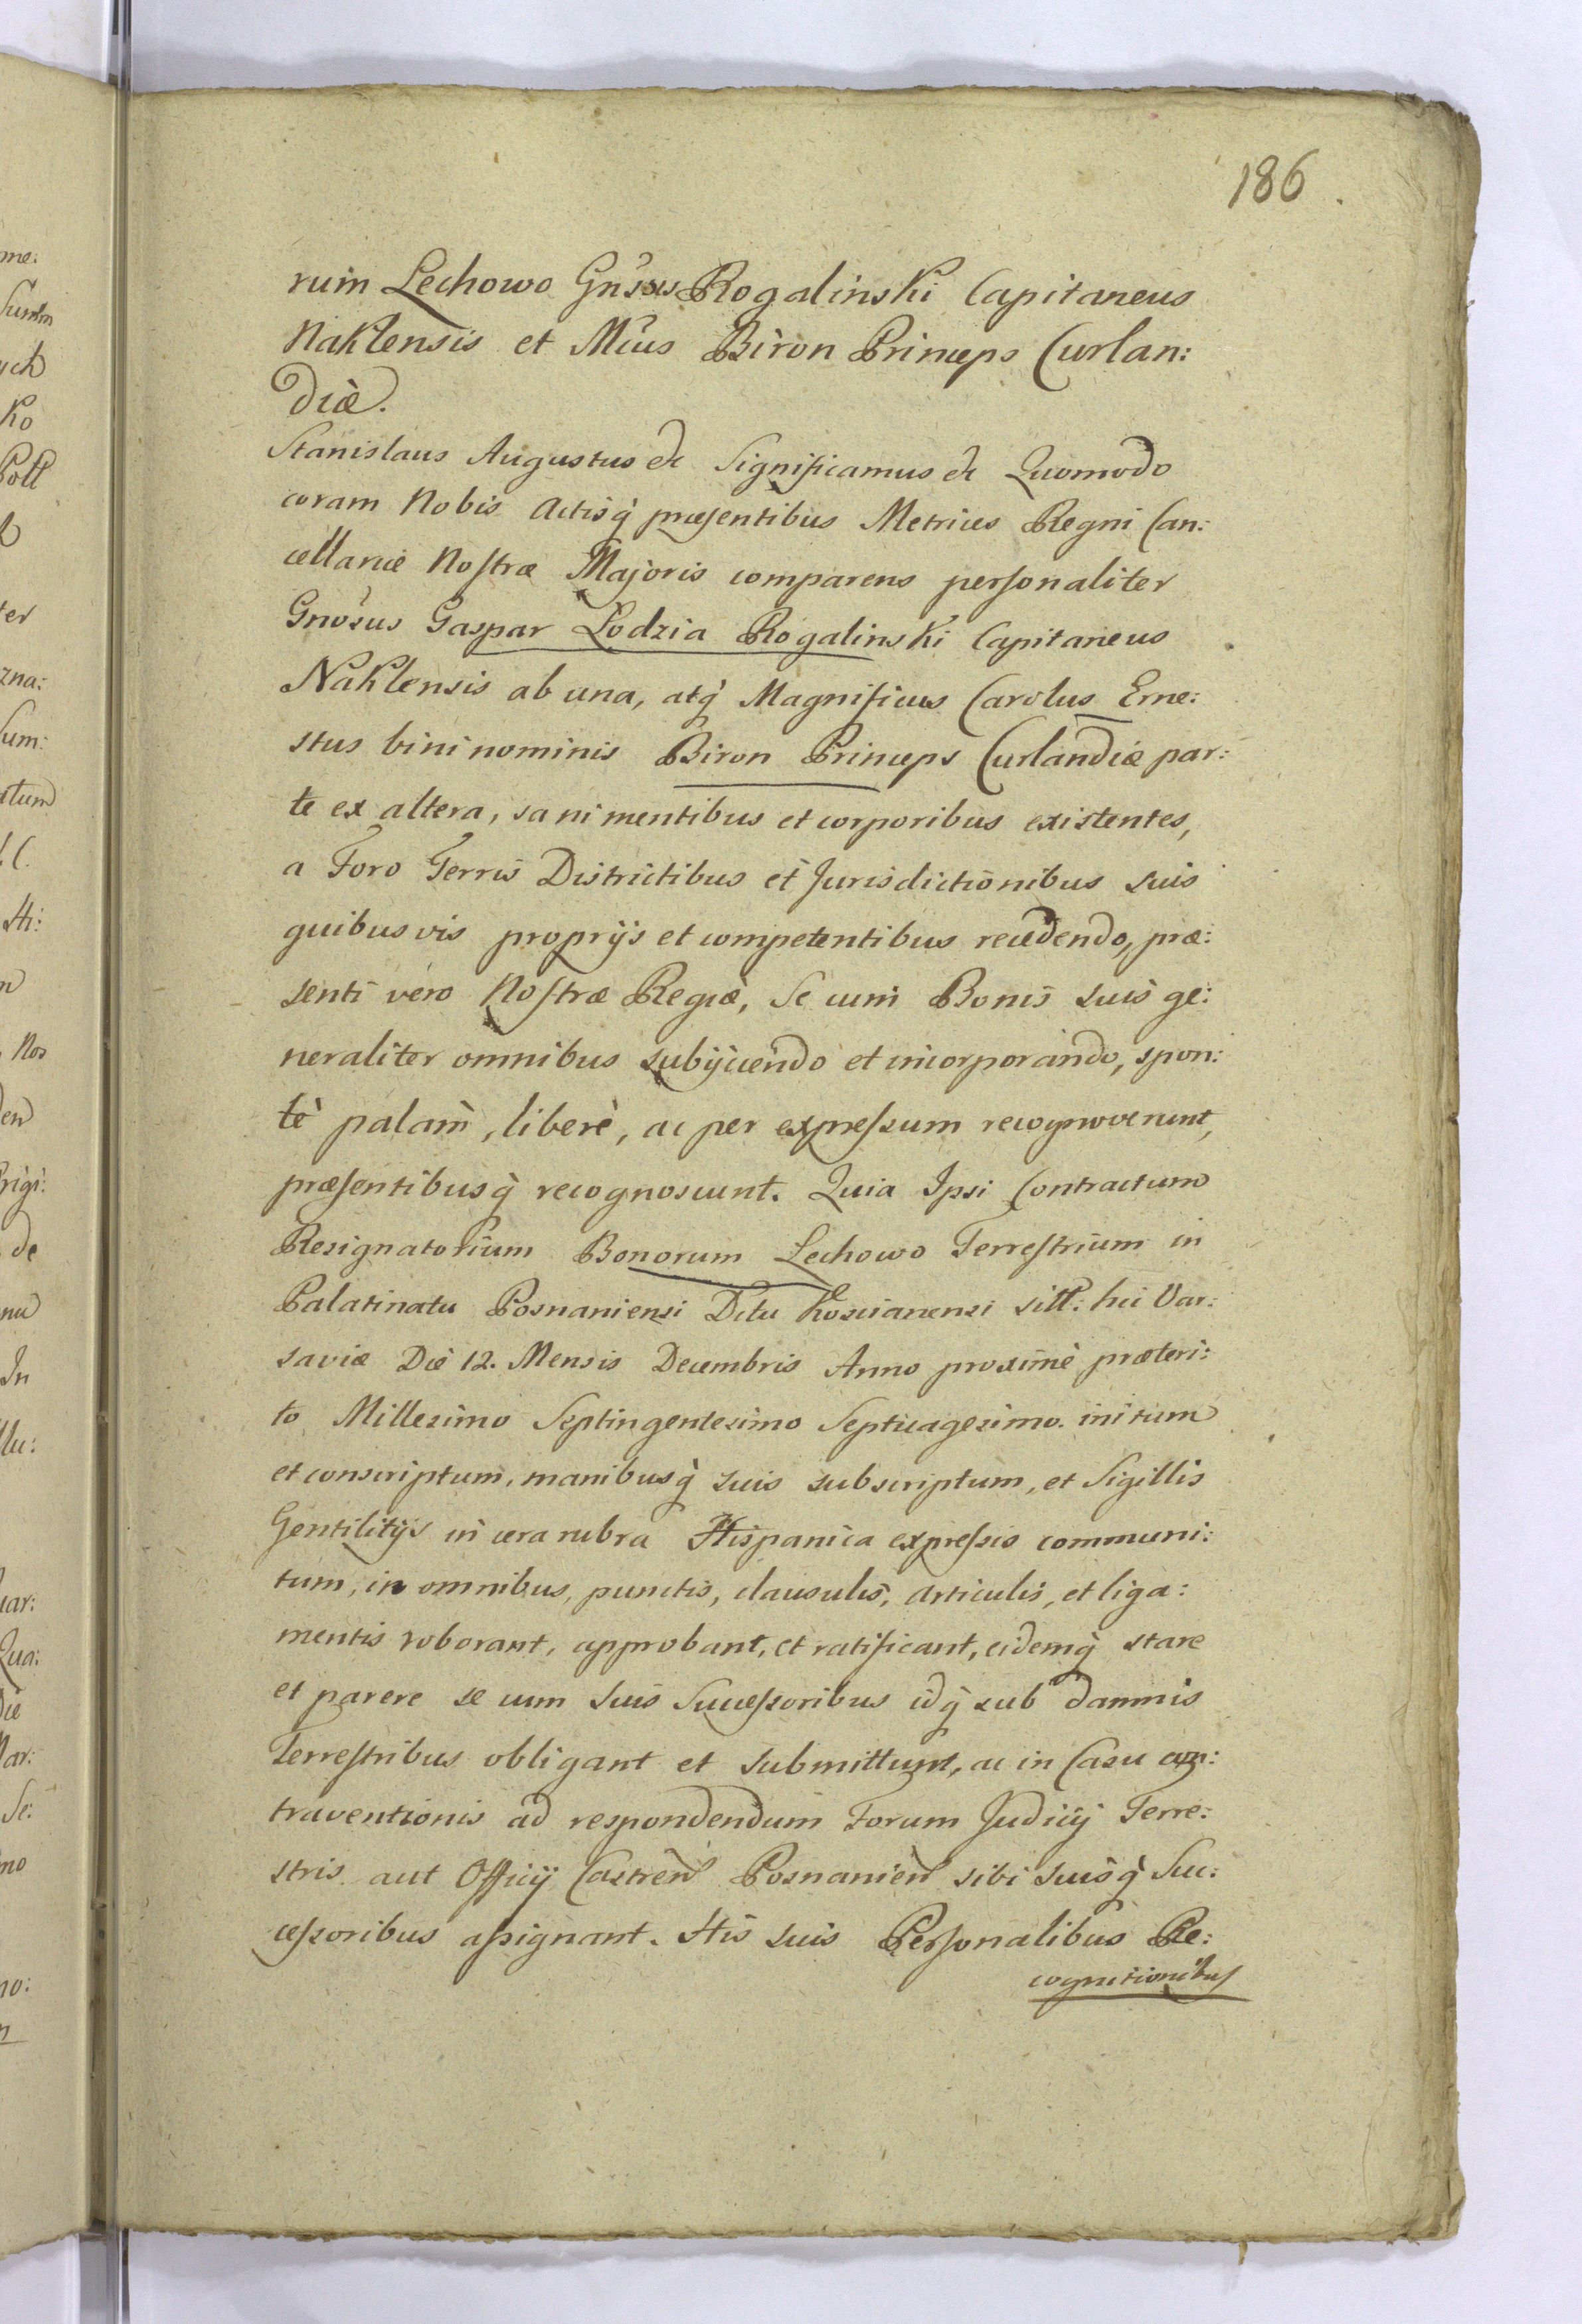 186.
rum Lechowo Gnsus Rogalinski Capitaneus
Naklensis et Mcus Biron Princeps Curlan:
diæ.
Stanislaus Augustus etc Significamus etc Quomodo
coram Nobis Actisq̀ præsentibus Metrices Regni Can:
cellariæ Nostræ Majoris comparens personaliter
Gnosus Gaspar Lodzia Rogalinski Capitaneus
Naklensis ab una, atq̀ Magnificus Carolus Erne:
stus bini nominis Biron Princeps Curlandiæ par:
te ex altera, sani mentibus et corporibus existentes,
a Foro Terris Districtibus et Jurisdictionibus suis
quibusvis proprijs et competentibus recedendo, præ:
senti vero Nostræ Regiæ, se cum Bonis suis ge:
neraliter omnibus subijciendo et incorporando, spon:
tè palam, liberè, ac per expressum recognoverunt,
præsentibusq̀ recognoscunt. Quia Ipsi Contractum
Resignatorium Bonorum Lechowo Terrestrium in
Palatinatu Posnaniensi Dctu Koscianensi sitt: hic Var:
saviæ Die 12. Mensis Decembris Anno proximè præteri:
to Millesimo Septingentesimo Septuagesimo. initum
et conscriptum, manibusq̀ suis subscriptum, et Sigillis
Gentilitijs in cera rubra Hispanica expressis communi:
tum, in omnibus, punctis, clausulis, articulis, et liga:
mentis roborant, approbant, et ratificant, eidemq̀ stare
et parere se cum suis Successoribus idq̀ sub damnis
Terrestribus obligant et submittunt, ac in Casu con:
traventionis ad respondendum Forum Judicij Terre:
stris aut Officij Castren Posnanien sibi suisq̀ Suc:
cessoribus assignant. His suis Personalibus Re:
cognitionibus
me:
Summ
ych
Ko
Poll
ter
zna:
Sum:
tum
Hi:
n
Nos
den
rigi:
de
nu
In
llu:
uar:
Qua:
Die
Mar:
Se:
mo
no:
n